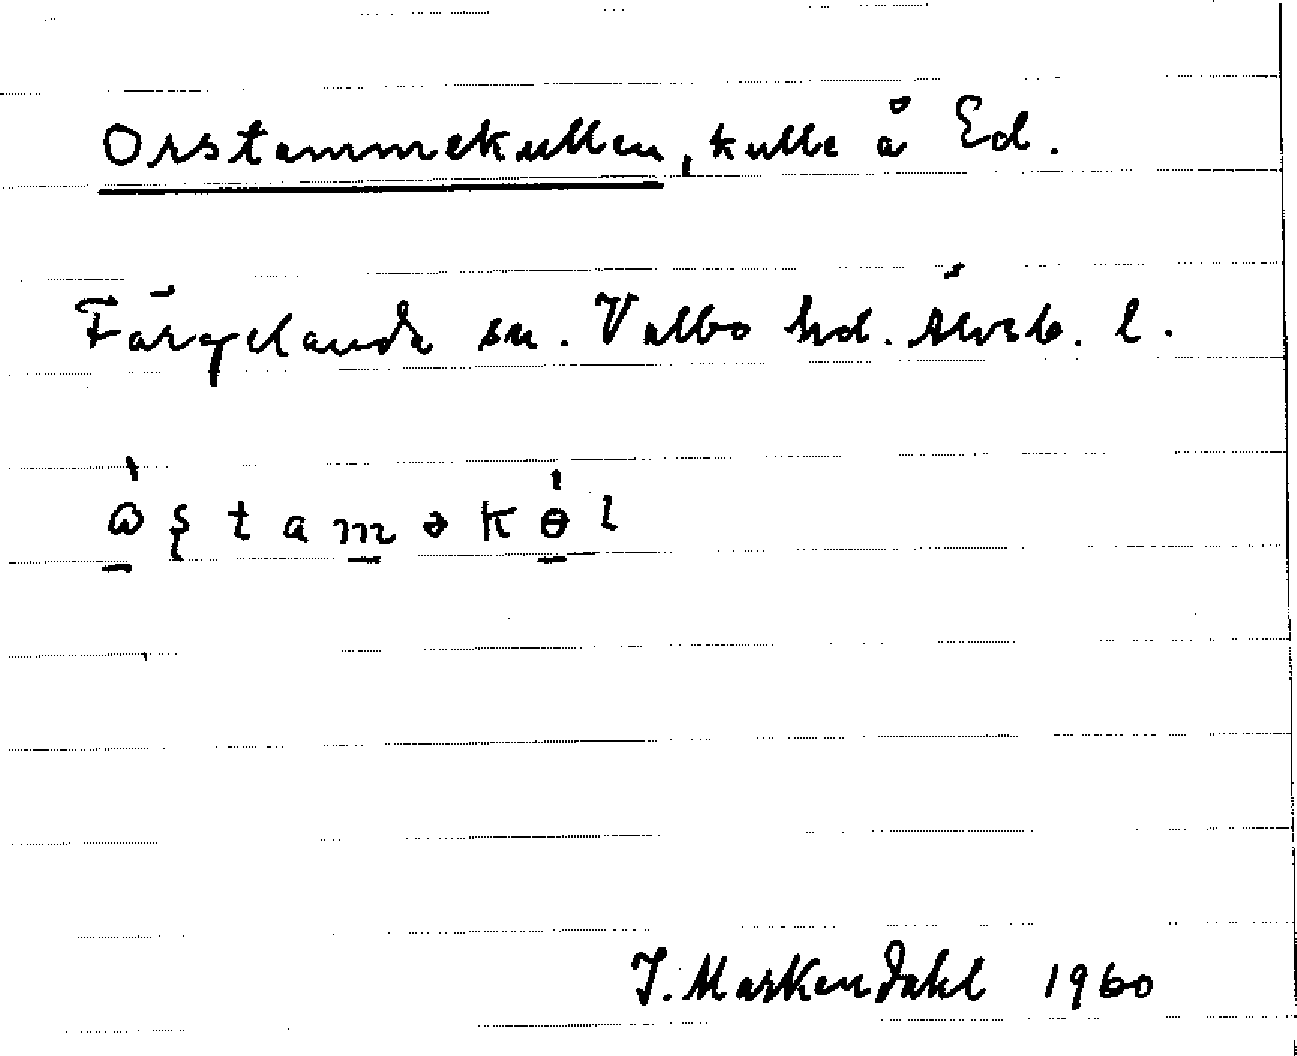 Orstammekullen, kulle å Ed.
Färgelanda sn. Valbo hd. Älvsb. l.
J. Markendahl 1960